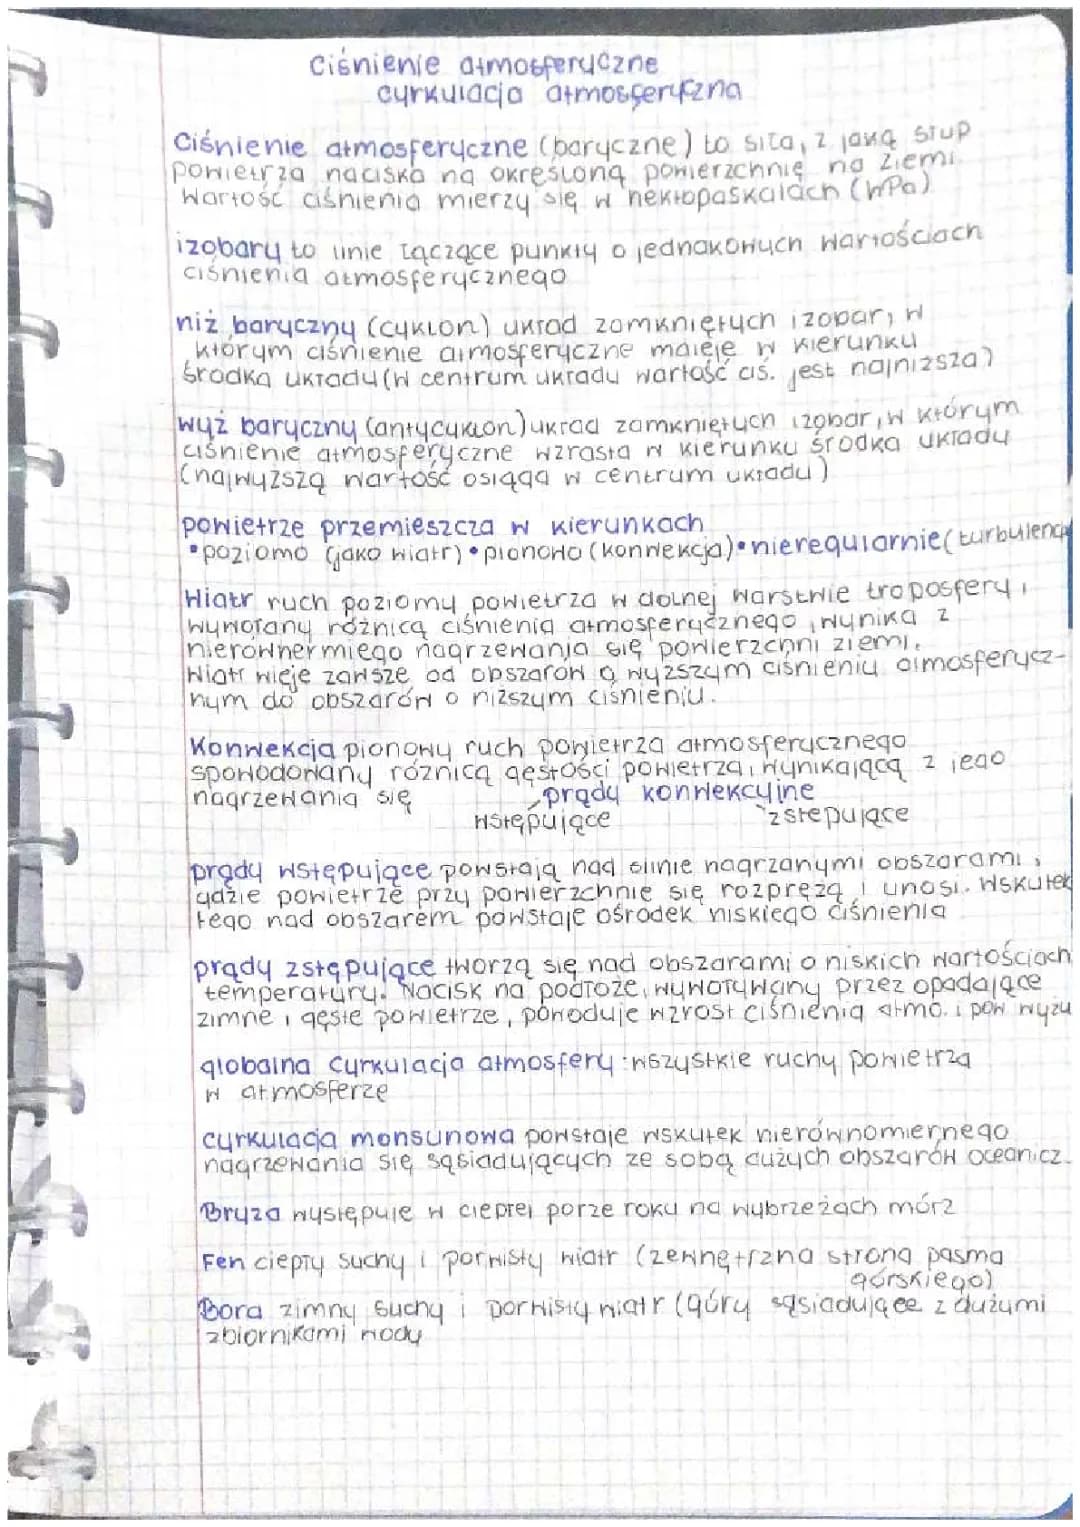 Ciśnienie atmosferyczne
cyrkulacja atmosferyczna
Ciśnienie atmosferyczne (baryczne) to siła, z jaką słup
powietrza naciska na określoną powierzchnię na Ziemi.
Wartość ciśnienia mierzy się w hektopaskalach (hPa)
izobary to linie łączące punkty o jednakowych wartościach
ciśnienia atmosferycznego
niż baryczny (cyklon) układ zamkniętych izobar, w
którym ciśnienie atmosferyczne maleje w kierunku
środka układu (w centrum układu wartość ciś. jest najniższa)
wyż baryczny (antycyklon) układ zamkniętych izobar, w którym
ciśnienie atmosferyczne wzrasta w kierunku środka układu
(najwyższą wartość osiąga w centrum układu)
powietrze przemieszcza w kierunkach
•poziomo (jako wiatr) •pionowo (konwekcja) •nieregularnie (turbulencja
Wiatr ruch poziomy powietrza w dolnej warstwie troposfery,
wywołany różnicą ciśnienia atmosferycznego, wynika z
nierównermiego nagrzewania się powierzchni ziemi.
Wiatr wieje zawsze od obszarów o wyższym ciśnieniu atmosferycz-
nym do obszarów o niższym ciśnieniu.
Konwekcja pionowy ruch powietrza atmosferycznego
spowodowany różnicą gęstości powietrza, wynikającą z jego
nagrzewania się
prądy konwekcyjne
wstępujące zstępujące
prądy wstępujące powstają nad silnie nagrzanymi obszarami,
gdzie powietrze przy powierzchnie się rozpręża i unosi. Wskutek
tego nad obszarem powstaje ośrodek niskiego ciśnienia
prądy zstępujące tworzą się nad obszarami o niskich wartościach
temperatury. Nacisk na podłoże, wywoływany przez opadające
zimne i gęste powietrze, powoduje wzrost ciśnienia atmo. i pow wyżu
globalna cyrkulacja atmosfery : wszystkie ruchy powietrza
w atmosferze
cyrkulacja monsunowa powstaje wskutek nierównomiernego
nagrzewania się sąsiadujących ze sobą dużych obszarów oceanicz.
Bryza występuje w ciepłej porze roku na wybrzeżach mórz
Fen ciepły suchy i porwisty wiatr (zewnętrzna strona pasma
górskiego)
Bora zimny suchy i porwisty wiatr (góry sąsiadujące z dużymi
zbiornikami wody